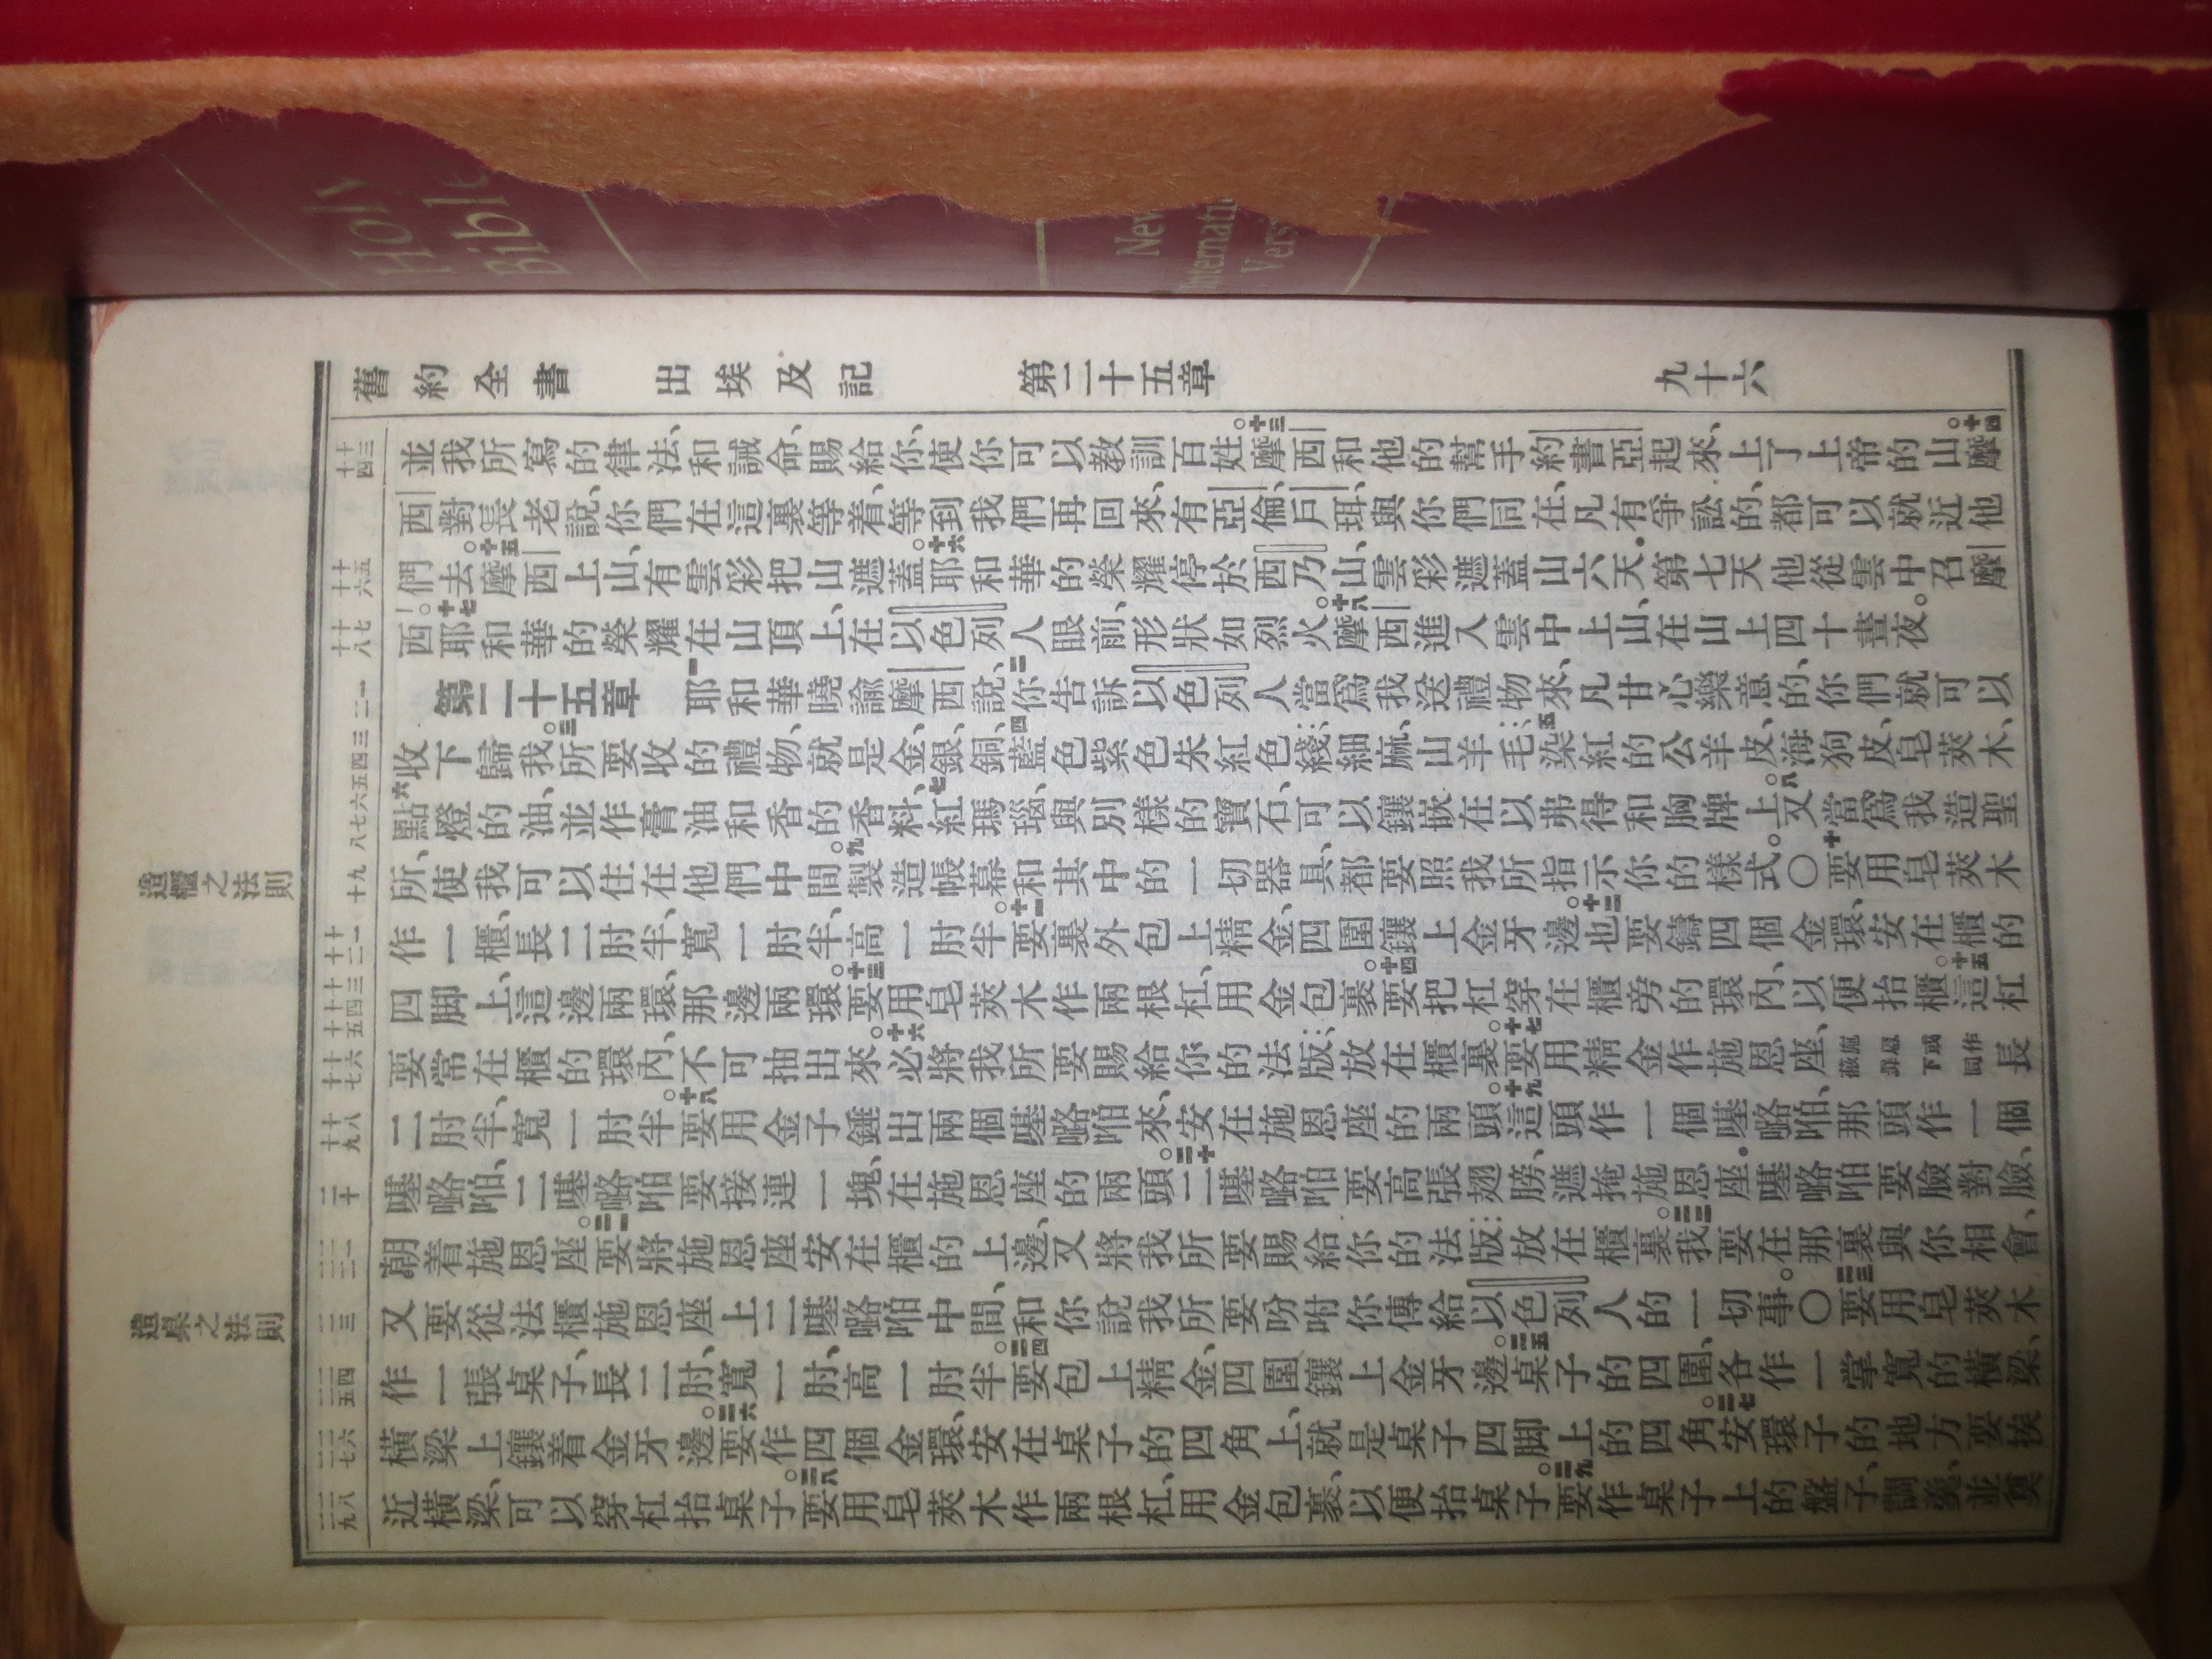 Holy
Bible
New
舊約全書 出埃及記 第二十五章 九十六
並我所寫的律法、和誡命、賜給你、使你可以教訓百姓。十三摩西和他的幫手約書亞起來、上了上帝的山。十四摩
西對長老說、你們在這裏等着、等到我們再回來、有亞倫、戶珥、與你們同在、凡有爭訟的、都可以就近他
們去。十五摩西上山、有雲彩把山遮蓋。十六耶和華的榮耀停於西乃山、雲彩遮蓋山六天．第七天他從雲中召摩
西。十七耶和華的榮耀在山頂上、在以色列人眼前、形狀如烈火。十八摩西進入雲中上山、在山上四十晝夜。
第二十五章 一耶和華曉諭摩西說、二你告訴以色列人當爲我送禮物來、凡甘心樂意的、你們就可以
收下歸我。三所要收的禮物、就是金、銀、銅、四藍色紫色朱紅色綫、細麻、山羊毛、五染紅的公羊皮、海狗皮、皂莢木、
六點燈的油、並作膏油和香的香料、七紅瑪瑙、與別樣的寶石、可以鑲嵌在以弗得和胸牌上。八又當爲我造聖
所、使我可以住在他們中間。九製造帳幕和其中的一切器具、都要照我所指示你的樣式。〇十要用皂莢木
作一櫃、長二肘半、寬一肘半、高一肘半。十一要裏外包上精金、四圍鑲上金牙邊。十二也要鑄四個金環、安在櫃的
四脚上、這邊兩環、那邊兩環。十三要用皂莢木作兩根杠、用金包裹。十四要把杠穿在櫃旁的環內、以便抬櫃。十五這杠
要常在櫃的環內、不可抽出來。十六必將我所要賜給你的法版、放在櫃裏。十七要用精金作施恩座、施恩或作蔽罪下同長
二肘半、寬一肘半。十八要用金子錘出兩個𠼻㗉啪來、安在施恩座的兩頭。十九這頭作一個𠼻㗉啪、那頭作一個
𠼻㗉啪、二𠼻㗉啪要接連一塊、在施恩座的兩頭。二十二𠼻㗉啪要高張翅膀、遮掩施恩座．𠼻㗉啪要臉對臉、
朝着施恩座。二一要將施恩座安在櫃的上邊、又將我所要賜給你的法版、放在櫃裏。二二我要在那裏與你相會、
又要從法櫃施恩座上二𠼻㗉啪中間、和你說我所要吩咐你傳給以色列人的一切事。〇二三要用皂莢木
作一張桌子、長二肘、寬一肘、高一肘半。二四要包上精金、四圍鑲上金牙邊。二五桌子的四圍、各作一掌寬的橫梁、
橫梁上鑲着金牙邊。二六要作四個金環、安在桌子的四角上、就是桌子四脚上的四角。二七安環子的地方要挨
近橫梁、可以穿杠抬桌子。二八要用皂莢木作兩根杠、用金包裹、以便抬桌子。二九要作桌子上的盤子、調羹、並奠
造櫃之法則
造桌之法則